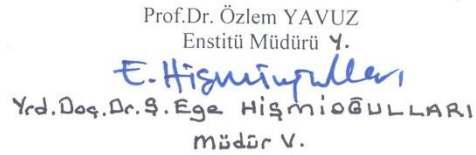 Prof.Dr. Özlem YAVUZ
Enstitü Müdürü Y.
E. Hişmioğulları
Yrd.Doç.Dr.Ş.Ege HİŞMİOĞULLARI
Müdür V.